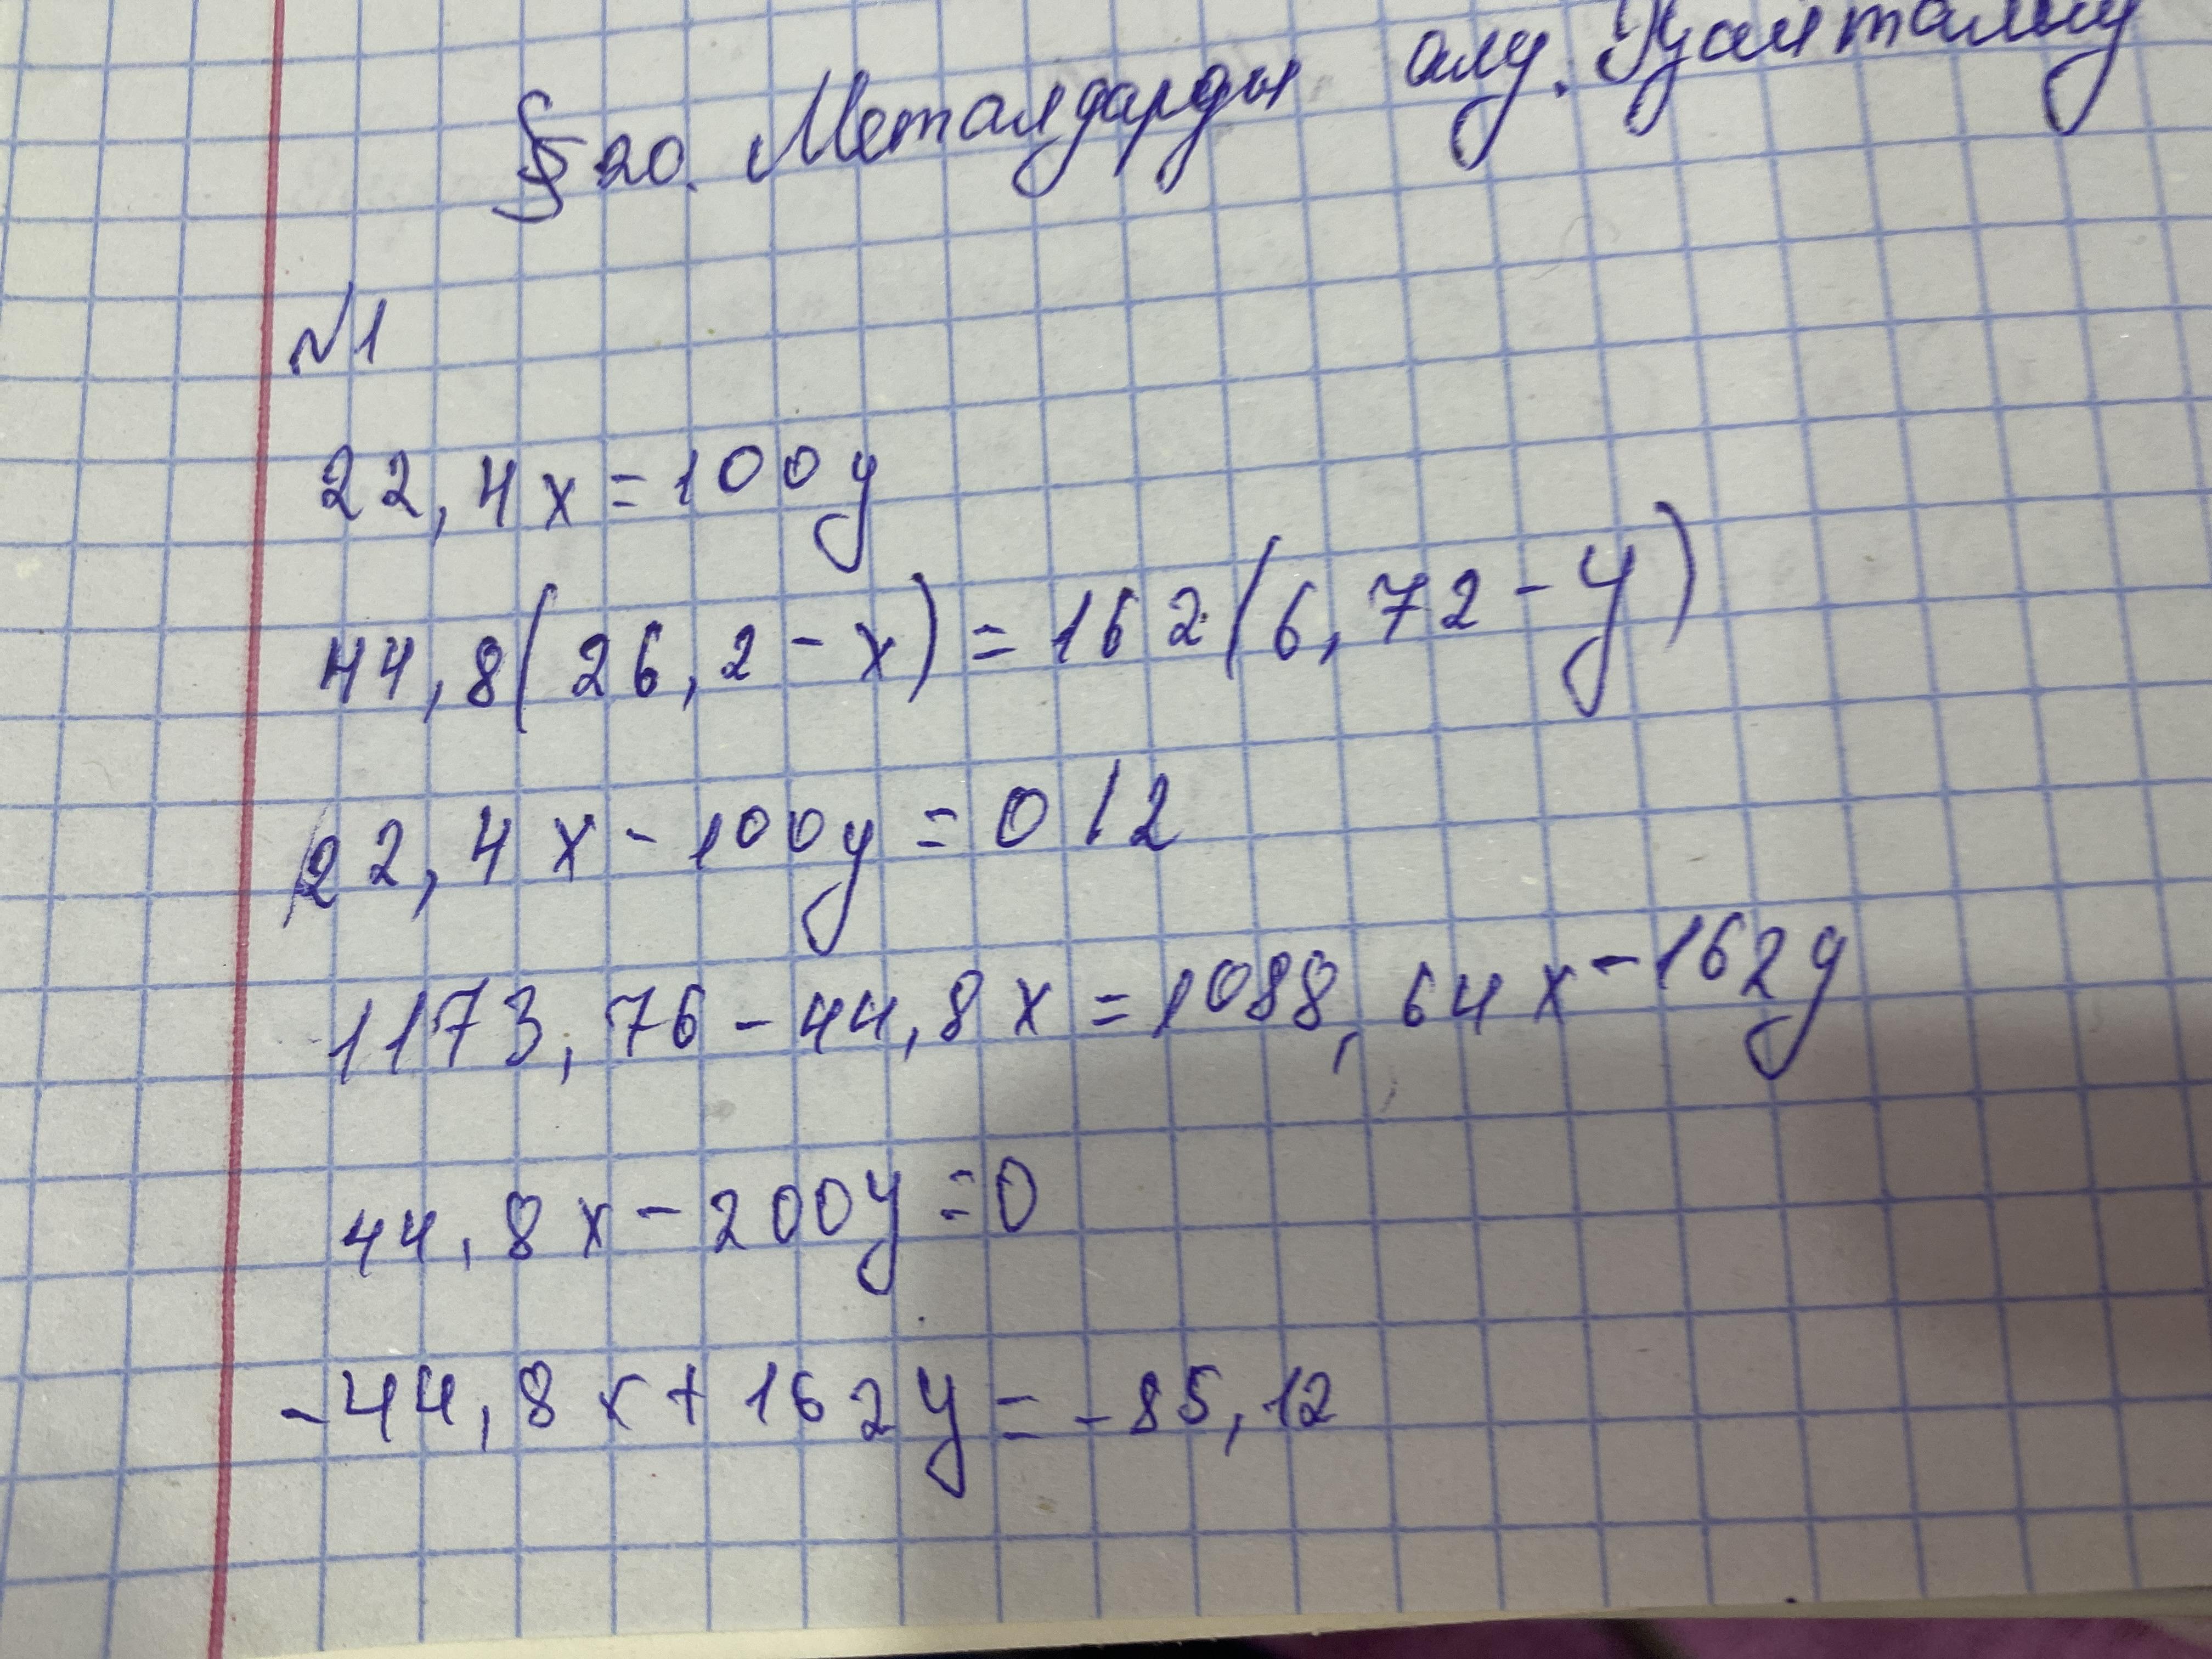 § 20. Металдарды алу. Қайталау
№1
22,4x=100y
44,8(26,2-x)=162(6,72-y)
22,4x-100y=0 12
1173,76-44,8x=1088,64x-162y
44,8x-200y=0
-44,8x+162y=-85,12